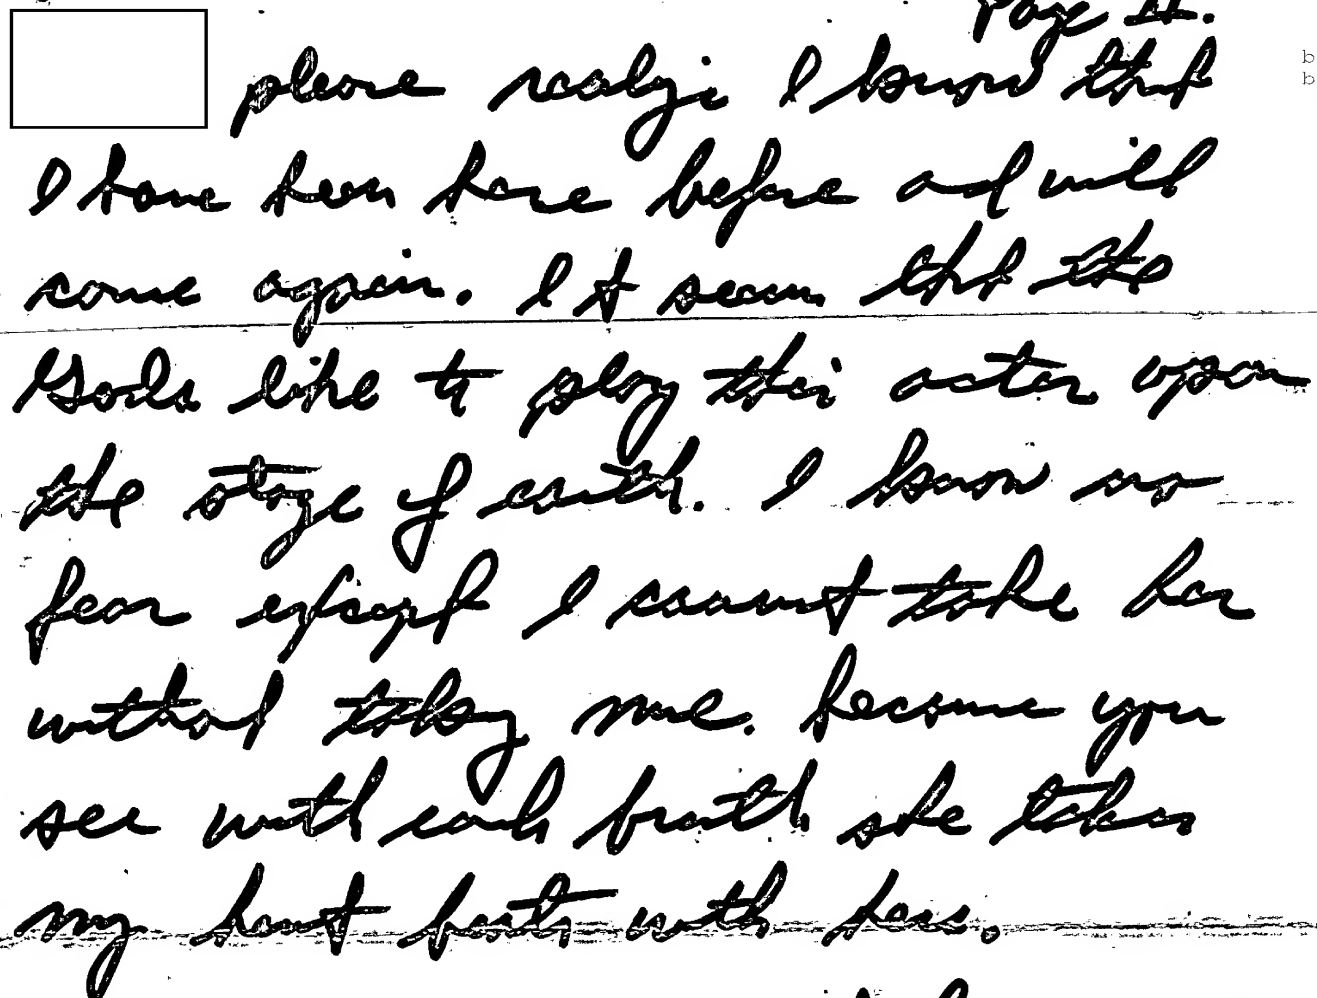 Page II.
please realize I know that
I have been here before and will
come again. It seem that the
Gods like to play their actor upon
the stage of earth. I know no
fear except I cannot take her
without taking me. because you
see with each breath she takes
my heart beats with hers.
b
b